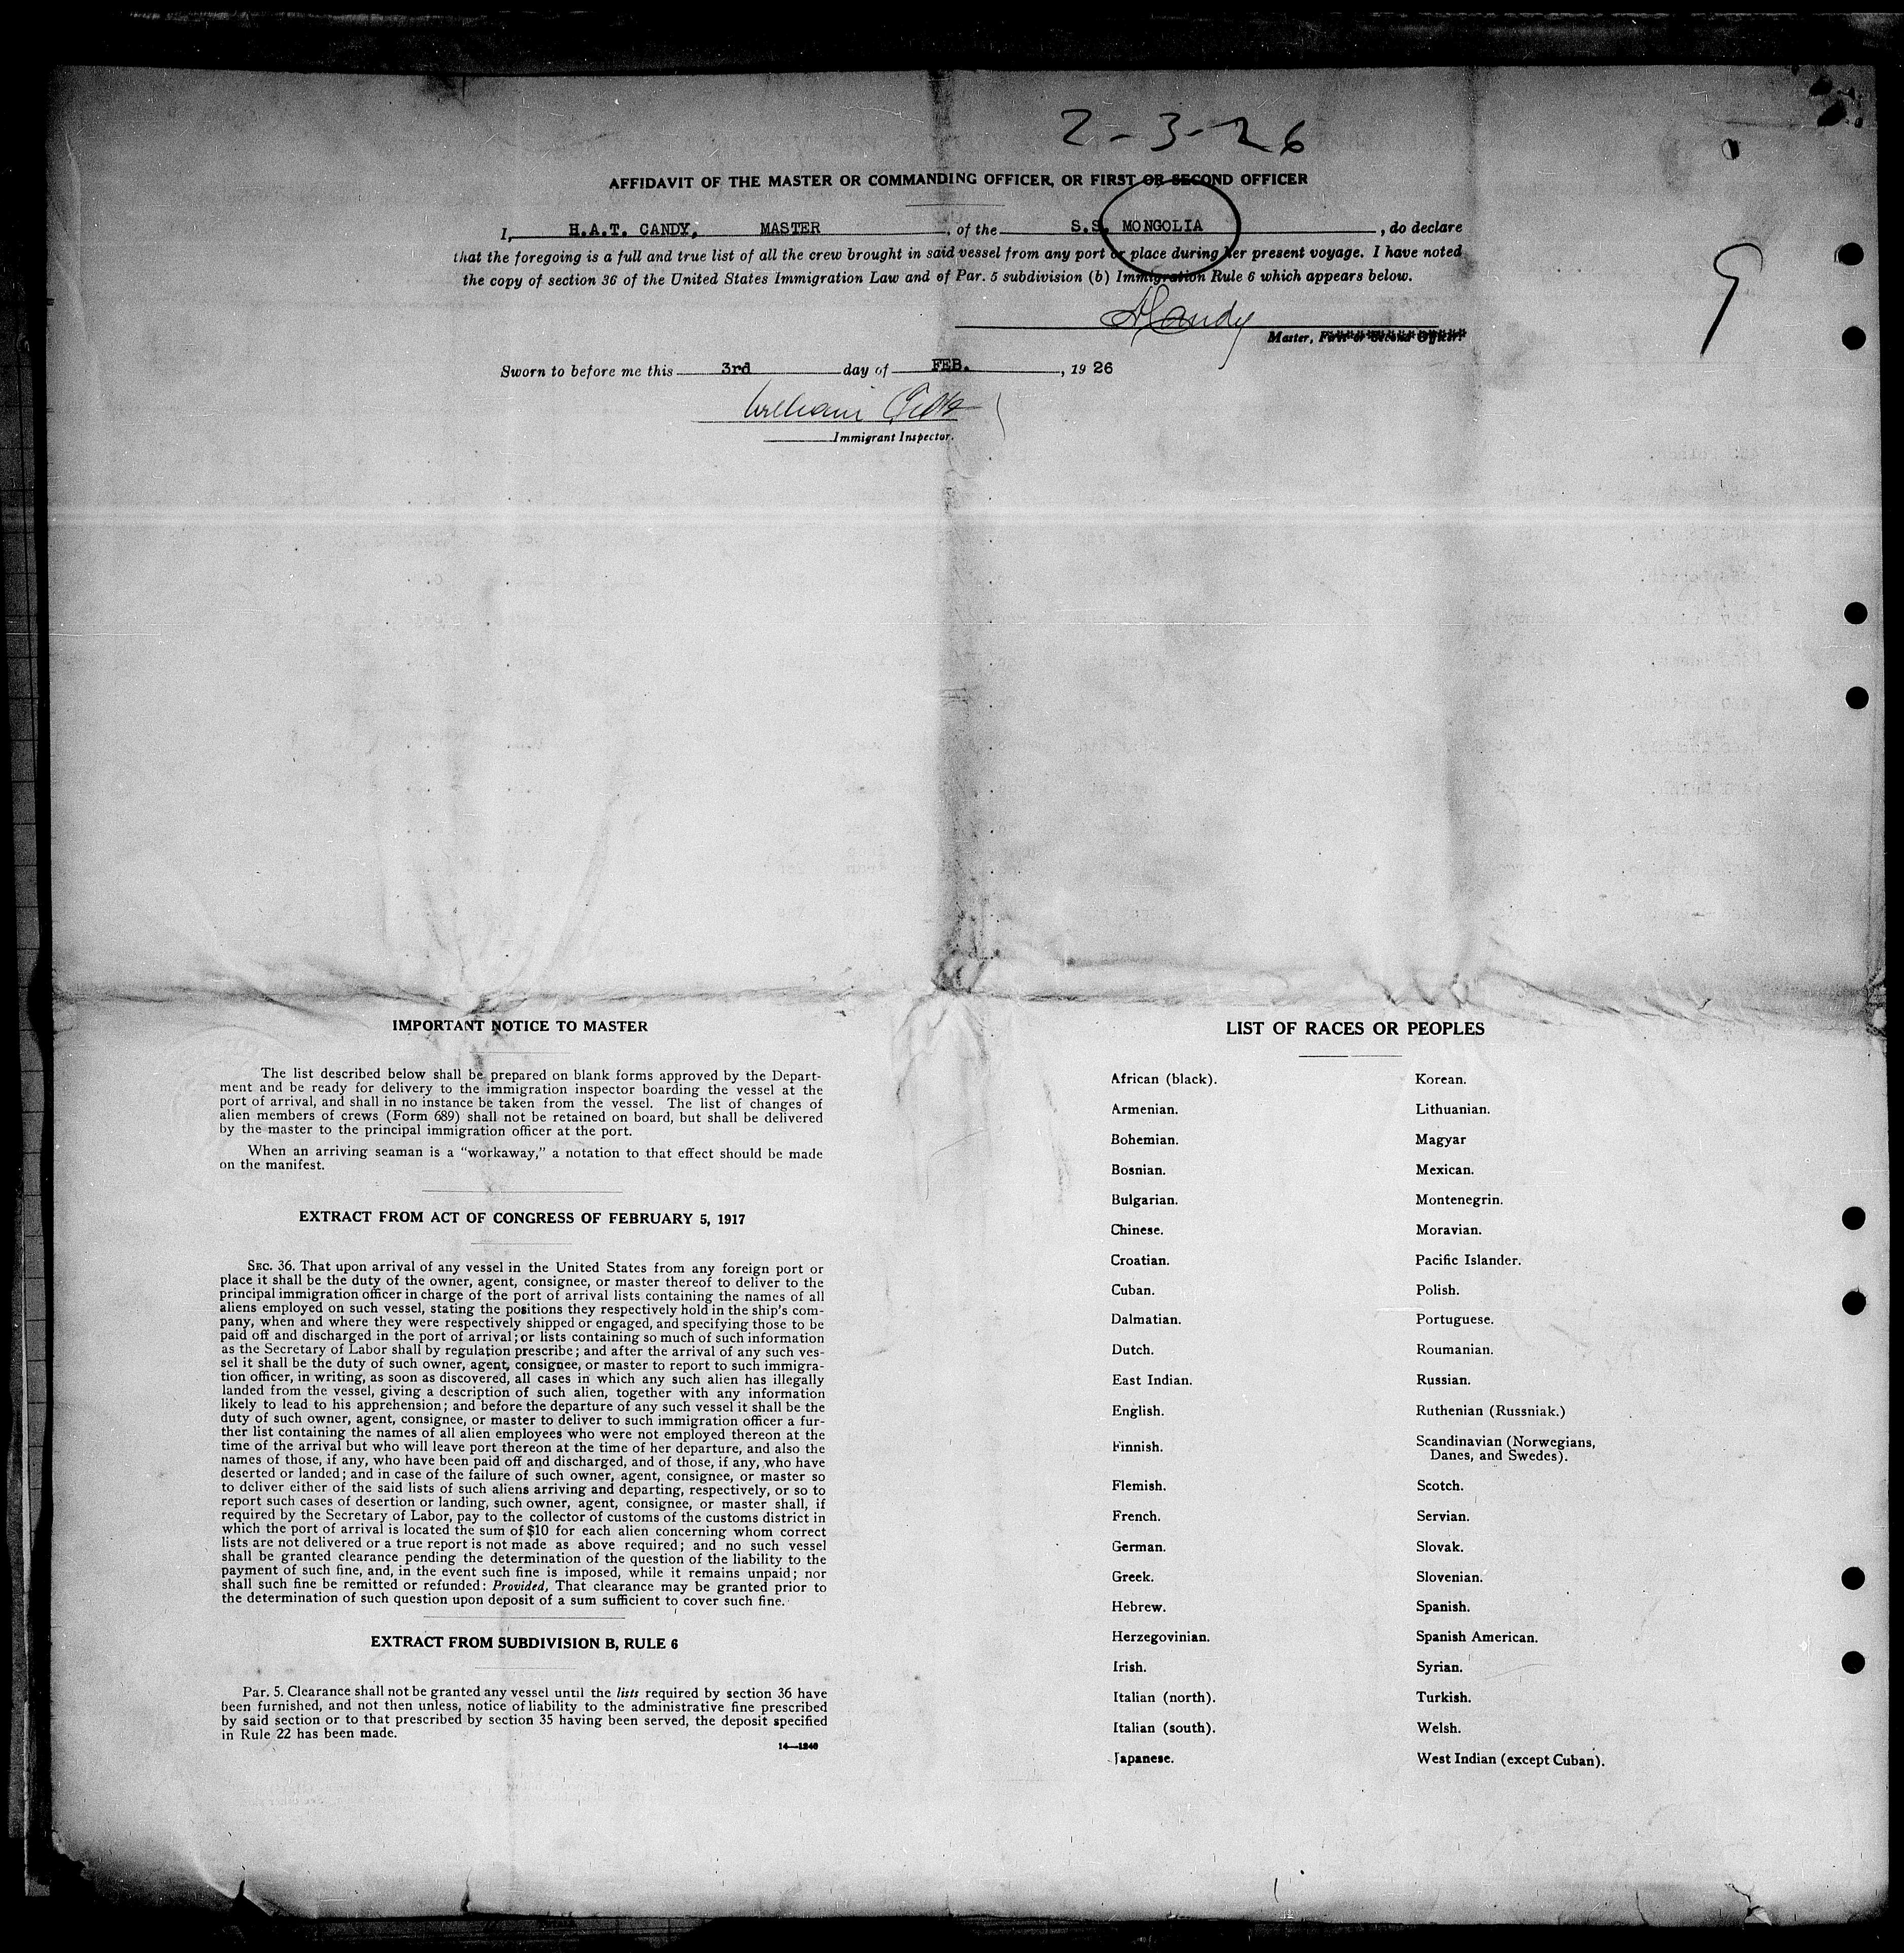 2-3-26
AFFIDAVIT OF THE MASTER OR COMMANDING OFFICER, OR FIRST OR SECOND OFFICER
I, H.A.T. CANDY, MASTER, of the S.S. MONGOLIA, do declare
that the foregoing is a full and true list of all the crew brought in said vessel from any port or place during her present voyage. I have noted
the copy of section 36 of the United States Immigration Law and of Par. 5 subdivision (b) Immigration Rule 6 which appears below.
9
HCandy
Master, First or Second Officer.
Sworn to before me this 3rd day of FEB., 1926
William
Immigrant Inspector.
IMPORTANT NOTICE TO MASTER
The list described below shall be prepared on blank forms approved by the Depart-
ment and be ready for delivery to the immigration inspector boarding the vessel at the
port of arrival, and shall in no instance be taken from the vessel. The list of changes of
alien members of crews (Form 689) shall not be retained on board, but shall be delivered
by the master to the principal immigration officer at the port.
When an arriving seaman is a "workaway," a notation to that effect should be made
on the manifest.
EXTRACT FROM ACT OF CONGRESS OF FEBRUARY 5, 1917
SEC. 36. That upon arrival of any vessel in the United States from any foreign port or
place it shall be the duty of the owner, agent, consignee, or master thereof to deliver to the
principal immigration officer in charge of the port of arrival lists containing the names of all
aliens employed on such vessel, stating the positions they respectively hold in the ship's com-
pany, when and where they were respectively shipped or engaged, and specifying those to be
paid off and discharged in the port of arrival; or lists containing so much of such information
as the Secretary of Labor shall by regulation prescribe; and after the arrival of any such ves-
sel it shall be the duty of such owner, agent, consignee, or master to report to such immigra-
tion officer, in writing, as soon as discovered, all cases in which any such alien has illegally
landed from the vessel, giving a description of such alien, together with any information
likely to lead to his apprehension; and before the departure of any such vessel it shall be the
duty of such owner, agent, consignee, or master to deliver to such immigration officer a fur-
ther list containing the names of all alien employees who were not employed thereon at the
time of the arrival but who will leave port thereon at the time of her departure, and also the
names of those, if any, who have been paid off and discharged, and of those, if any, who have
deserted or landed; and in case of the failure of such owner, agent, consignee, or master so
to deliver either of the said lists of such aliens arriving and departing, respectively, or so to
report such cases of desertion or landing, such owner, agent, consignee, or master shall, if
required by the Secretary of Labor, pay to the collector of customs of the customs district in
which the port of arrival is located the sum of $10 for each alien concerning whom correct
lists are not delivered or a true report is not made as above required; and no such vessel
shall be granted clearance pending the determination of the question of the liability to the
payment of such fine, and, in the event such fine is imposed, while it remains unpaid; nor
shall such fine be remitted or refunded: Provided, That clearance may be granted prior to
the determination of such question upon deposit of a sum sufficient to cover such fine.
EXTRACT FROM SUBDIVISION B, RULE 6
Par. 5. Clearance shall not be granted any vessel until the lists required by section 36 have
been furnished, and not then unless, notice of liability to the administrative fine prescribed
by said section or to that prescribed by section 35 having been served, the deposit specified
in Rule 22 has been made.
14—1240
LIST OF RACES OR PEOPLES
African (black).
Armenian.
Bohemian.
Bosnian.
Bulgarian.
Chinese.
Croatian.
Cuban.
Dalmatian.
Dutch.
East Indian.
English.
Finnish.
Flemish.
French.
German.
Greek.
Hebrew.
Herzegovinian.
Irish.
Italian (north).
Italian (south).
Japanese.
Korean.
Lithuanian.
Magyar
Mexican.
Montenegrin.
Moravian.
Pacific Islander.
Polish.
Portuguese.
Roumanian.
Russian.
Ruthenian (Russniak.)
Scandinavian (Norwegians,
Danes, and Swedes).
Scotch.
Servian.
Slovak.
Slovenian.
Spanish.
Spanish American.
Syrian.
Turkish.
Welsh.
West Indian (except Cuban).